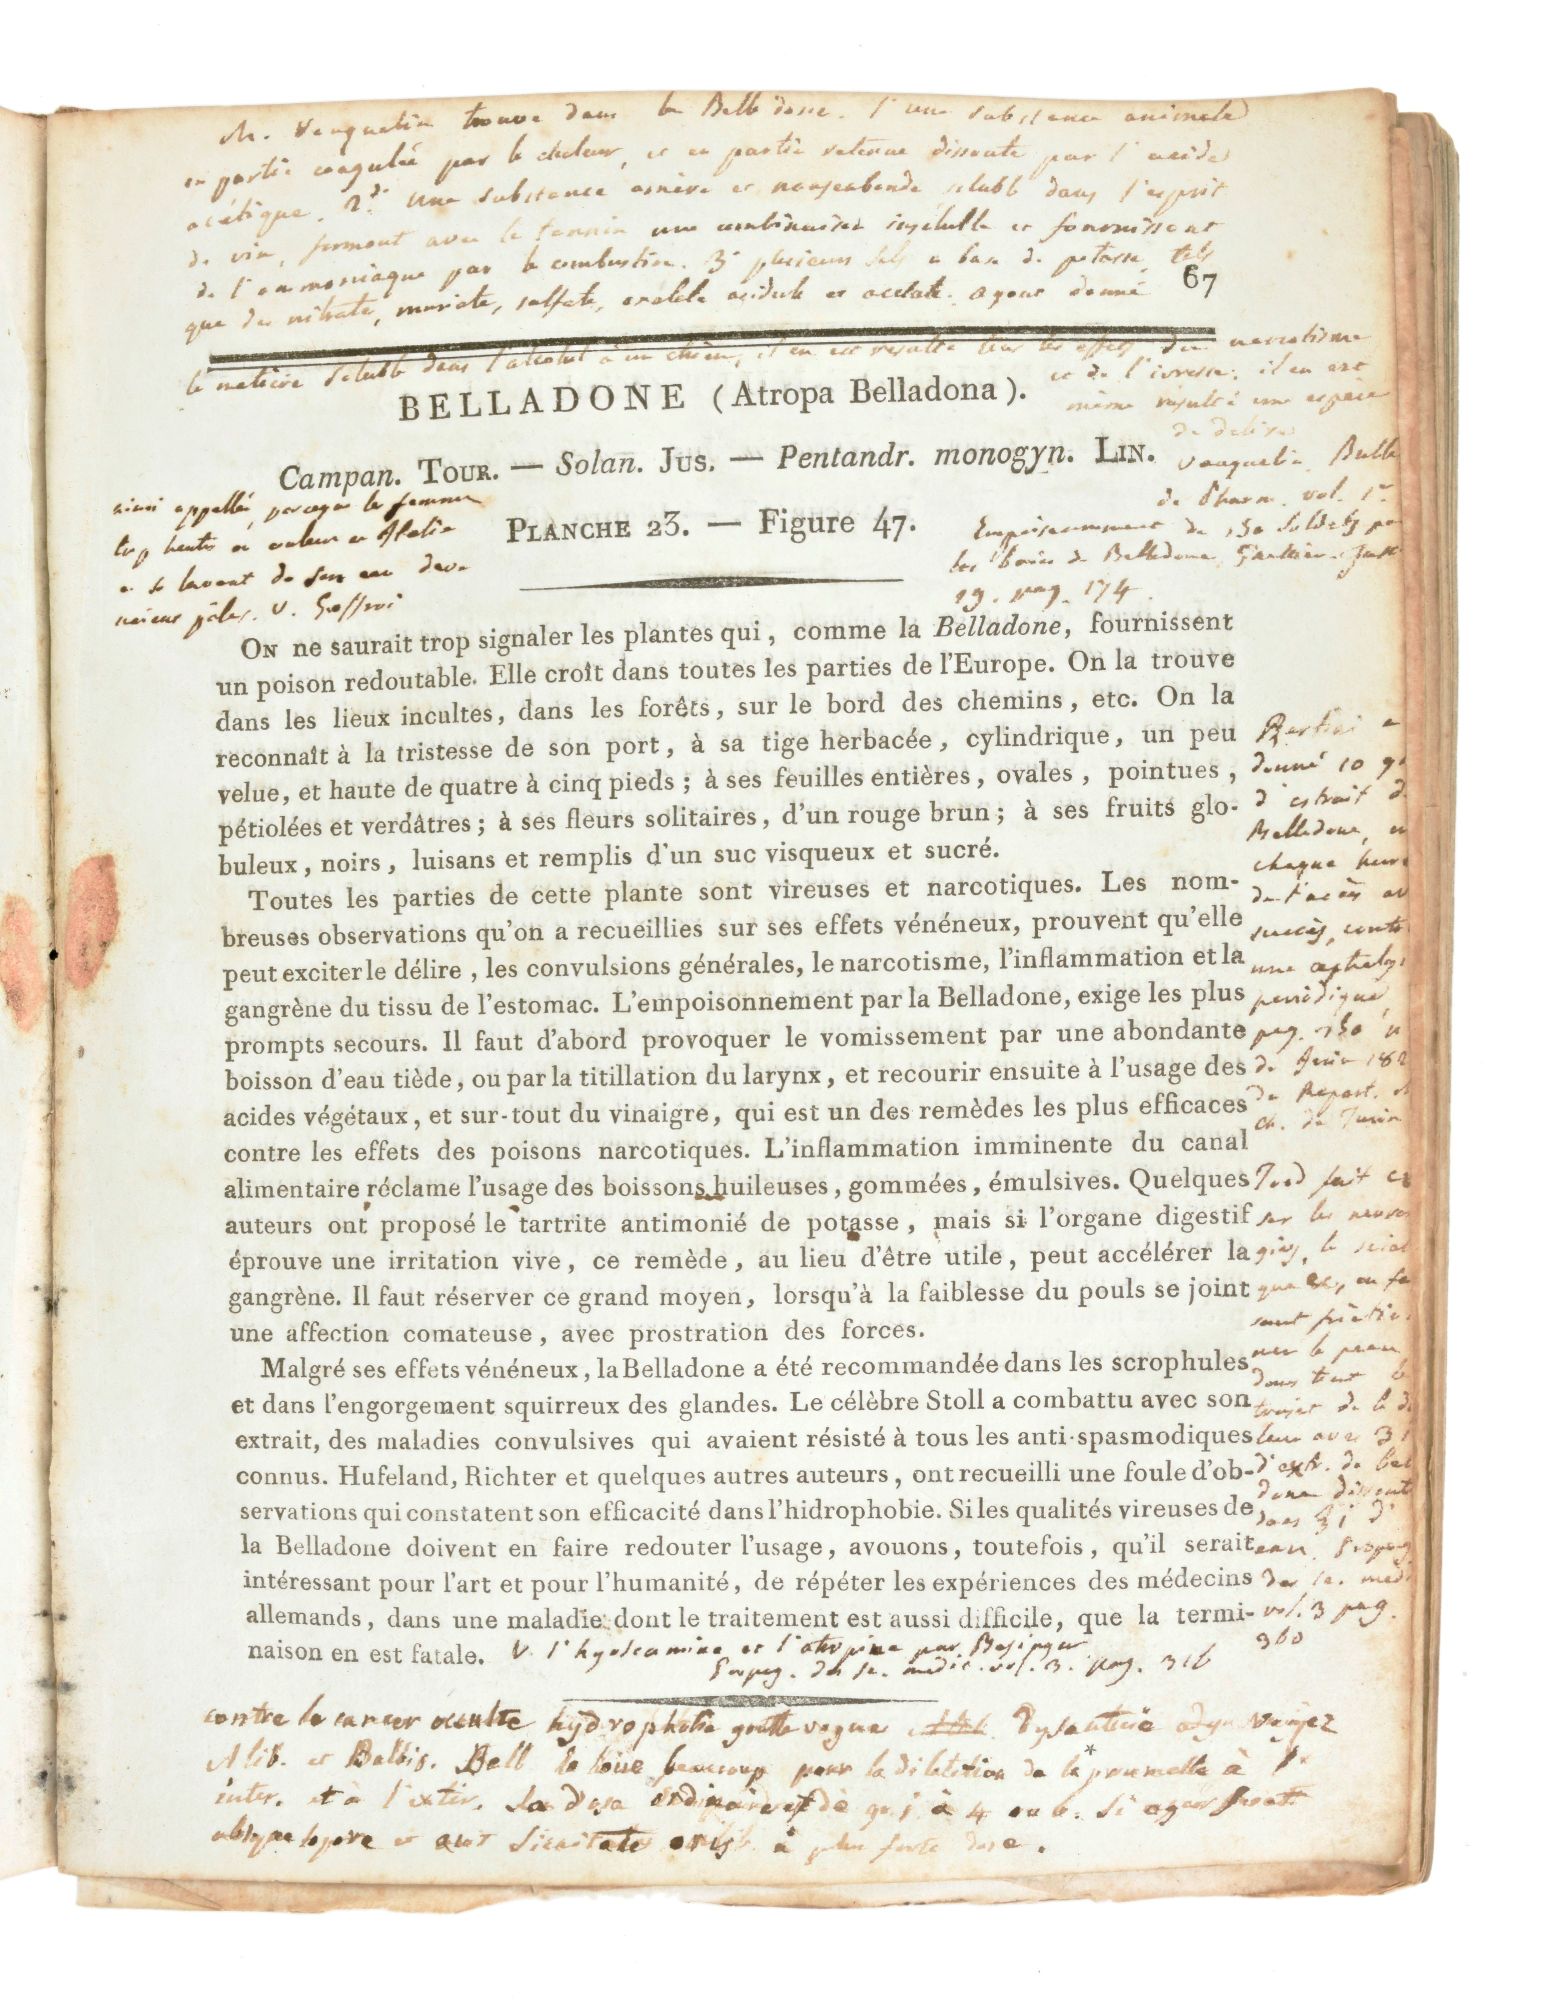 M. Vauquelin trouve dans la Belladone. 1° une substance animale
en partie coagulée par la chaleur, et en partie retenue dissoute par l'acide
acétique. 2° une substance amère et nauseabonde soluble dans l'esprit
de vin, formant avec le tannin une combinaison insoluble et fournissant
de l'ammoniaque par la combustion. 3° plusieurs sels a base de potasse, tels
que du nitrate, muriate, sulfate, oxalate acidule et acetate. ayant donné
67
la matière soluble dans l'alcohol à un chien, il en est résulté tous les effets du narcotisme
et de l'ivresse; il en est
même résulté une espèce
de delire
Vauquelin, Bulle
de Pharm. vol. 1er
BELLADONE (Atropa Belladona).
Campan. TOUR. — Solan. JUS. — Pentandr. monogyn. LIN.
PLANCHE 23. — Figure 47.
ainsi appellée, parceque les femmes
trop hautes en couleur en Italie
se lavent de son eau
pâles. V. Geffroi
Empoisonnement de 150 Soldats par
les baies de Belladone, Gaultier.
19. pag. 174.
ON ne saurait trop signaler les plantes qui, comme la Belladone, fournissent
un poison redoutable. Elle croît dans toutes les parties de l'Europe. On la trouve
dans les lieux incultes, dans les forêts, sur le bord des chemins, etc. On la
reconnaît à la tristesse de son port, à sa tige herbacée, cylindrique, un peu
velue, et haute de quatre à cinq pieds; à ses feuilles entières, ovales, pointues,
pétiolées et verdâtres; à ses fleurs solitaires, d'un rouge brun; à ses fruits glo-
buleux, noirs, luisans et remplis d'un suc visqueux et sucré.
Toutes les parties de cette plante sont vireuses et narcotiques. Les nom-
breuses observations qu'on a recueillies sur ses effets vénéneux, prouvent qu'elle
peut exciter le délire, les convulsions générales, le narcotisme, l'inflammation et la
gangrène du tissu de l'estomac. L'empoisonnement par la Belladone, exige les plus
prompts secours. Il faut d'abord provoquer le vomissement par une abondante
boisson d'eau tiède, ou par la titillation du larynx, et recourir ensuite à l'usage des
acides végétaux, et sur-tout du vinaigre, qui est un des remèdes les plus efficaces
contre les effets des poisons narcotiques. L'inflammation imminente du canal
alimentaire réclame l'usage des boissons huileuses, gommées, émulsives. Quelques
auteurs ont proposé le tartrite antimonié de potasse, mais si l'organe digestif
éprouve une irritation vive, ce remède, au lieu d'être utile, peut accélérer la
gangrène. Il faut réserver ce grand moyen, lorsqu'à la faiblesse du pouls se joint
une affection comateuse, avec prostration des forces.
Malgré ses effets vénéneux, la Belladone a été recommandée dans les scrophules
et dans l'engorgement squirreux des glandes. Le célèbre Stoll a combattu avec son
extrait, des maladies convulsives qui avaient résisté à tous les anti-spasmodiques
connus. Hufeland, Richter et quelques autres auteurs, ont recueilli une foule d'ob-
servations qui constatent son efficacité dans l'hidrophobie. Si les qualités vireuses de
la Belladone doivent en faire redouter l'usage, avouons, toutefois, qu'il serait
intéressant pour l'art et pour l'humanité, de répéter les expériences des médecins
allemands, dans une maladie dont le traitement est aussi difficile, que la termi-
naison en est fatale.
donné 10
d'extrait d
Belladone,
chaque heure
de l'accès
succès, contre
une cephalg
periodique,
pag. 150
de Juin 182
de Repert.
ch. de Turin
fait
sur les nevral
gies, la sciati
que etc, en fai
sant frictio
ner la peau
dans tout le
trajet de la do
leur avec
d'extr. de bel
done dissout
dans ʒi d'
eau. Propag.
des sc. med.
vol. 3 pag.
360
V. l'hyoscamine et l'atropine par
Propag. des sc. medic. vol. 3. pag. 316
contre le cancer occulte hydrophobie goutte vague Dysenterie voyez
Alib. et Balbis. Bell le loue beaucoup pour la dilatation de la prunelle à l'
inter. et à l'exter. La dose ordinaire est de gr. j à 4 ou 6.
et à plus forte dose.